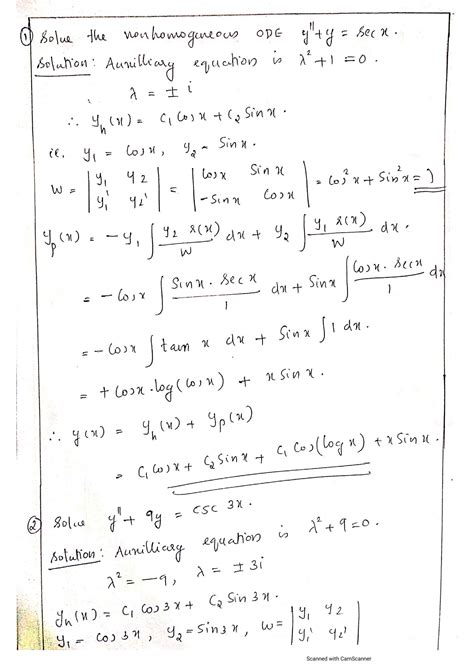 ① Solve the nonhomogeneous ODE y'' + y = sec x.
Solution: Auxilliary equation is λ² + 1 = 0.
λ = ± i
∴ y_h(x) = C₁ Cos x + C₂ Sin x.
ie. y₁ = Cos x, y₂ = Sin x.
W = | y₁ y₂ ; y₁' y₂' | = | Cos x Sin x ; -Sin x Cos x | = Cos² x + Sin² x = 1
y_p(x) = - y₁ ∫ y₂ r(x) / W dx + y₂ ∫ y₁ r(x) / W dx.
= - Cos x ∫ Sin x · Sec x / 1 dx + Sin x ∫ Cos x · Sec x / 1 dx
= - Cos x ∫ tan x dx + Sin x ∫ 1 dx.
= + Cos x · log (Cos x) + x Sin x.
∴ y(x) = y_h(x) + y_p(x)
= C₁ Cos x + C₂ Sin x + C₁ Cos (log x) + x Sin x.
② Solve y'' + 9y = csc 3x.
Solution: Auxilliary equation is λ² + 9 = 0.
λ² = -9, λ = ± 3i
y_h(x) = C₁ Cos 3x + C₂ Sin 3x.
y₁ = Cos 3x, y₂ = Sin 3x, W = | y₁ y₂ ; y₁' y₂' |
Scanned with CamScanner